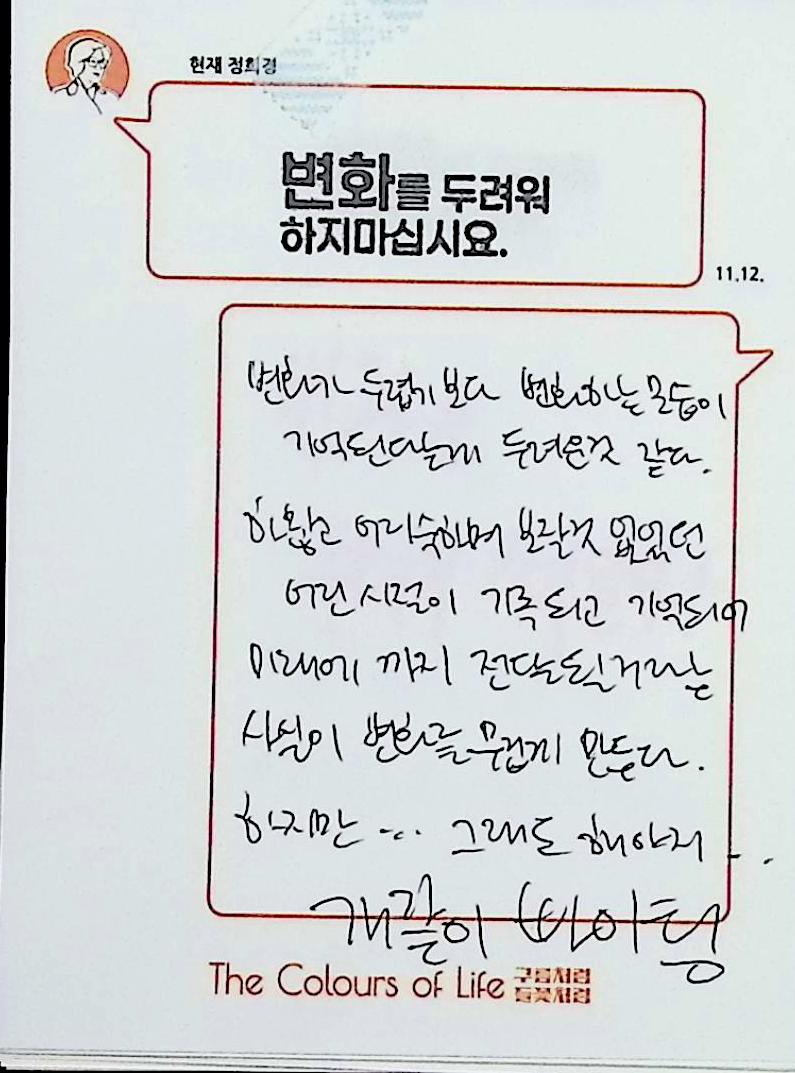 현재 정희경
변화를 두려워
하지마십시요.
11.12.
변화가 두렵기 보다 변화하는 모습이
기억된다는게 두려운것 같다.
하찮고 어리숙하며 보잘것 없었던
어린 시절이 기록되고 기억되어
미래에 까지 전달될거라는
사실이 변화를 무겁게 만든다.
하지만 ... 그래도 해야지 ...
개같이 파이팅
The Colours of Life 구름처럼
들꽃처럼